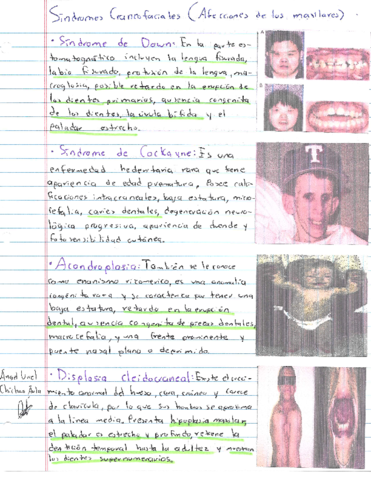 Síndromes Craneofaciales (Afecciones de los maxilares).
• Síndrome de Down: En la parte es-
tomatognática incluyen la lengua fisurada,
labio fisurado, protusión de la lengua, ma-
croglosia, posible retardo en la erupción de
los dientes primarios, ausencia congenita
de los dientes, la úvula bífida y el
paladar estrecho.
A
B
• Síndrome de Cockayne: Es una
enfermedad hederitaria rara que tiene
apariencia de edad prematura, Posee calci-
ficaciones intracraneales, baja estatura, micro-
cefalia, caries dentales, degeneración neuro-
lógica progresiva, apariencia de duende y
fotosensibilidad cutánea.
T
• Acondroplasia: También se le conoce
como enanismo rizomerico, es una anomalia
congénita rara y se caracteriza por tener una
baja estatura, retardo en la erupción
dental, ausencia congenita de piezas dentales,
macrocefalia, y una frente prominente y
puente nasal plano o deprimido.
• Displasia cleidocraneal: Existe creci-
miento anormal del hueso, cara, craneo y carece
de clavicula, por lo que sus hombros se aproximan
a la linea media. Presenta hipoplasia maxilar,
el paladar es estrecho y profundo, retiene la
dentición temporal hasta la adultez y muestran
los dientes supernumerarios.
Angel Uriel